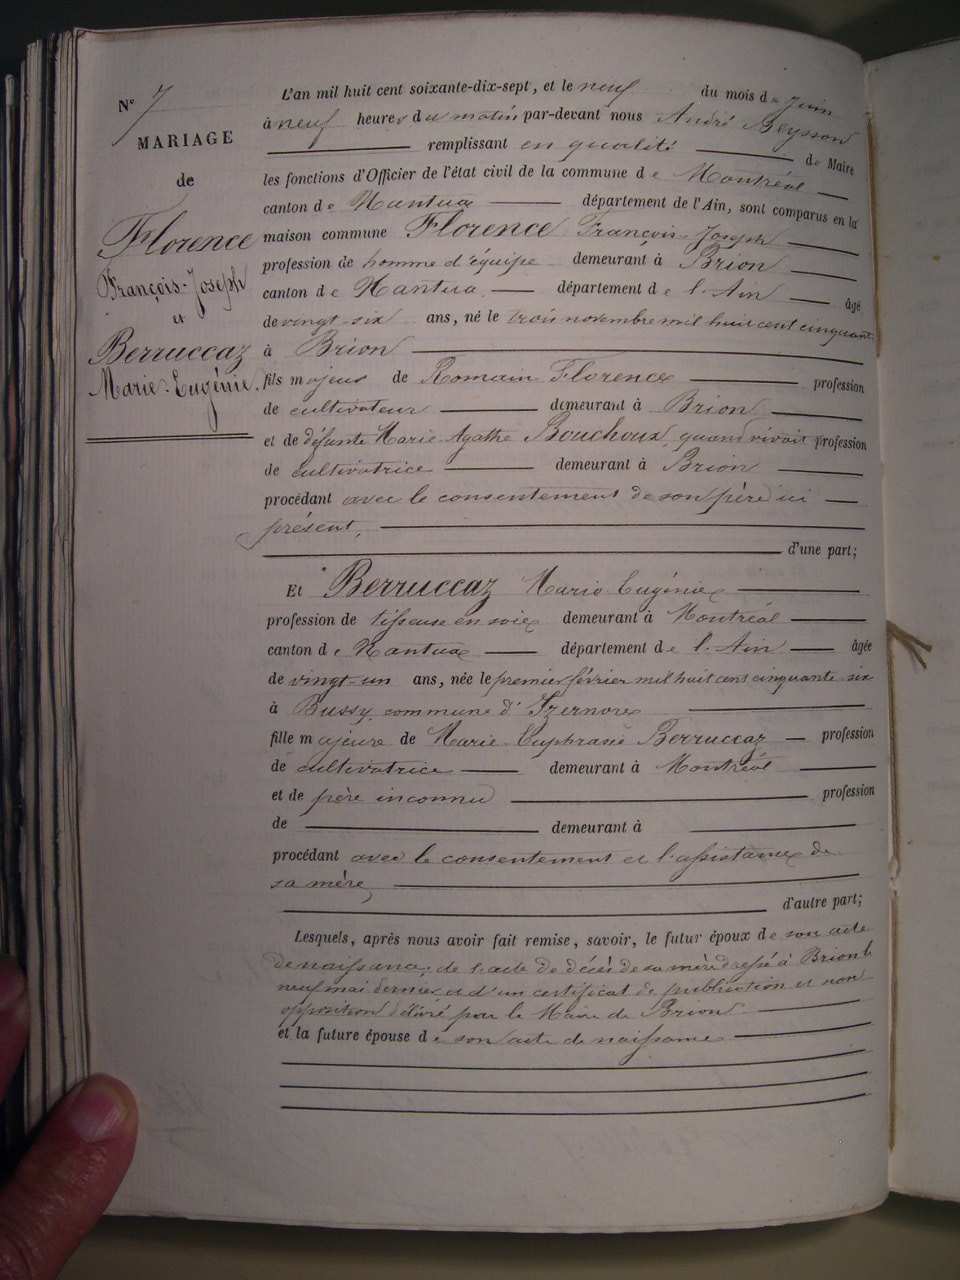 N° 7
MARIAGE
de
Florence
François-Joseph
et
Berruccaz
Marie-Eugénie.
L'an mil huit cent soixante-dix-sept, et le neuf du mois de Juin
à neuf heures du matin par-devant nous André Beysson
remplissant en qualité de Maire
les fonctions d'Officier de l'état civil de la commune de Montréal
canton de Nantua département de l'Ain, sont comparus en la
maison commune Florence François-Joseph
profession de homme d'équipe demeurant à Brion
canton de Nantua département de l'Ain âgé
de vingt-six ans, né le trois novembre mil huit cent cinquante
à Brion
fils majeur de Romain Florence profession
de cultivateur demeurant à Brion
et de défunte Marie Agathe Bouchoux, quand vivait profession
de cultivatrice demeurant à Brion
procédant avec le consentement de son père ici
présent,
d'une part;
Et Berruccaz Marie Eugénie
profession de tisseuse en soie demeurant à Montréal
canton de Nantua département de l'Ain âgée
de vingt-un ans, née le premier février mil huit cent cinquante-six
à Bussy, commune d'Izernore
fille majeure de Marie Euphrasie Berruccaz profession
de cultivatrice demeurant à Montréal
et de père inconnu profession
de demeurant à
procédant avec le consentement et l'assistance de
sa mère,
d'autre part;
Lesquels, après nous avoir fait remise, savoir, le futur époux de son acte
de naissance, de l'acte de décès de sa mère dressé à Brion le
neuf mai dernier, et d'un certificat de publication et non
opposition délivré par le Maire de Brion.
et la future épouse de son acte de naissance